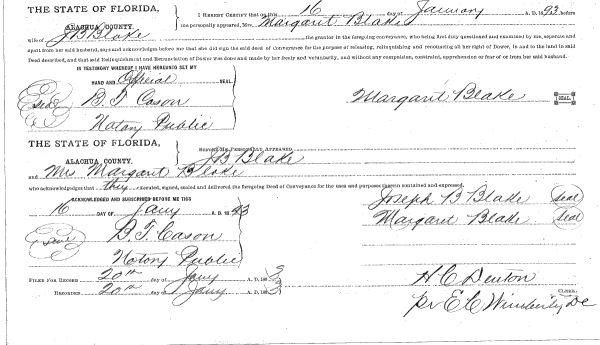 THE STATE OF FLORIDA,
ALACHUA COUNTY.
I HEREBY CERTIFY that on this 16 day of January A. D. 1893 before
me personally appeared, Mrs. Margaret Blake
wife of J B Blake the grantor in the foregoing conveyance, who being first duly questioned and examined by me, separate and
apart from her said husband, says and acknowledges before me that she did sign the said deed of Conveyance for the purpose of releasing, relinquishing and renouncing all her right of Dower, in and to the land in said
Deed described, and that said Relinquishment and Renunciation of Dower was done and made by her freely and voluntarily, and without any compulsion, constraint, apprehension or fear of or from her said husband.
IN TESTIMONY WHEREOF I HAVE HEREUNTO SET MY
HAND AND Official SEAL
Seal B. T. Cason
Margaret Blake SEAL.
Notary Public
THE STATE OF FLORIDA,
ALACHUA COUNTY.
BEFORE ME PERSONALLY APPEARED J B Blake
and Mrs Margaret Blake
who acknowledges that they executed, signed, sealed and delivered the foregoing Deed of Conveyance for the uses and purposes therein contained and expressed.
ACKNOWLEDGED AND SUBSCRIBED BEFORE ME THIS
Joseph B Blake Seal
16 DAY OF Jany A. D. 1893
Margaret Blake Seal
Seal B. T. Cason
Notary Public
FILED FOR RECORD 20th day of Jany A. D. 1893
H C Denton
CLERK.
RECORDED 20th day of Jany A. D. 1893
pr E C Wimberly DC